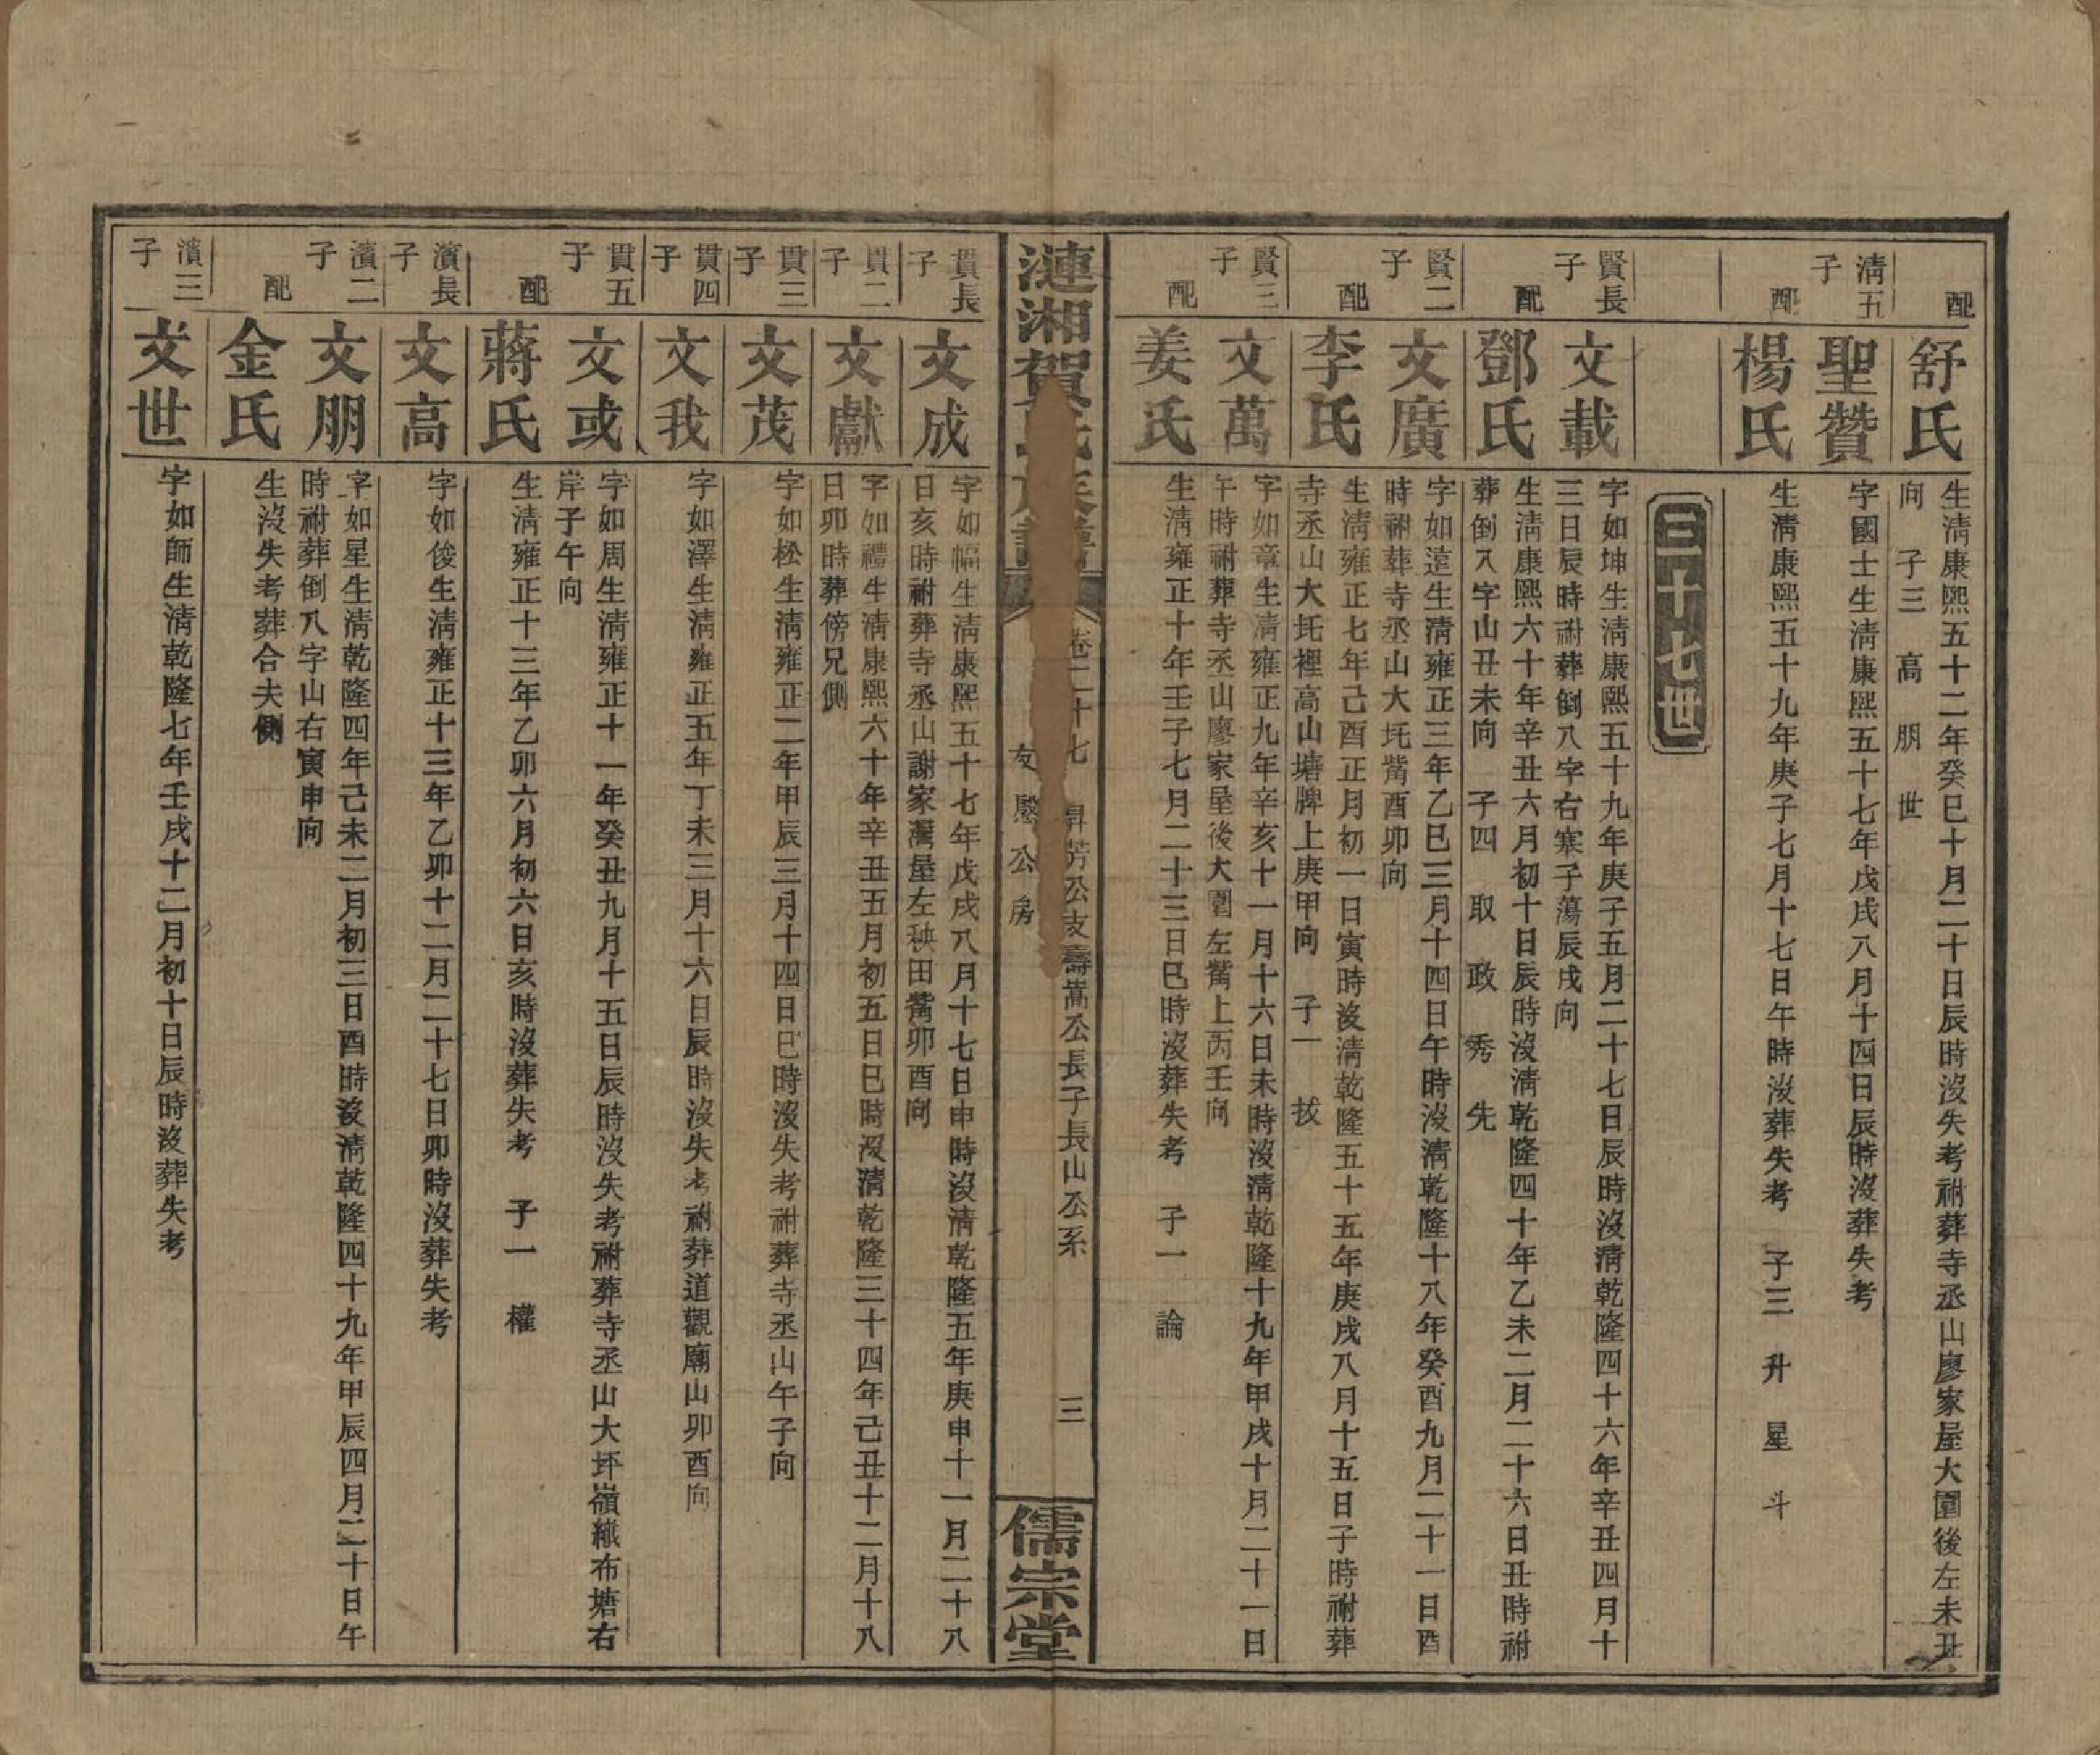 配
舒氏
生淸康熙五十二年癸巳十月二十日辰時沒失考祔葬寺丞山廖家屋大園後左未丑
向 子三 高 朋 世
淸五子
聖贊
字國士生淸康熙五十七年戊戌八月十四日辰時沒葬失考
配
楊氏
生淸康熙五十九年庚子七月十七日午時沒葬失考 子三 升 星 斗
三十七世
賢長子
文載
字如坤生淸康熙五十九年庚子五月二十七日辰時沒淸乾隆四十六年辛丑四月十
三日辰時祔葬倒八字右寨子蕩辰戌向
配
鄧氏
生淸康熙六十年辛丑六月初十日辰時沒淸乾隆四十年乙未二月二十六日丑時祔
葬倒入字山丑未向 子四 取 政 秀 先
賢二子
文廣
字如遠生淸雍正三年乙巳三月十四日午時沒淸乾隆十八年癸酉九月二十一日酉
時祔葬寺丞山大坉觜酉卯向
配
李氏
生淸雍正七年己酉正月初一日寅時沒淸乾隆五十五年庚戌八月十五日子時祔葬
寺丞山大坉裡高山塘牌上庚甲向 子一 拔
賢三子
文萬
字如章生淸雍正九年辛亥十一月十六日未時沒淸乾隆十九年甲戌十月二十一日
午時祔葬寺丞山廖家屋後大園左觜上丙壬向
配
姜氏
生淸雍正十年壬子七月二十三日巳時沒葬失考 子一 論
漣湘賀氏族譜
卷二十七 昇芳公支壽嵩公長子長山公系
友 公房
三
儒宗堂
貫長子
文成
字如幅生淸康熙五十七年戊戌八月十七日申時沒淸乾隆五年庚申十一月二十八
日亥時祔葬寺丞山謝家灣屋左秧田觜卯酉向
貫二子
文獻
字如禮生淸康熙六十年辛丑五月初五日巳時沒淸乾隆三十四年己丑十二月十八
日卯時葬傍兄側
貫三子
文茂
字如松生淸雍正二年甲辰三月十四日巳時沒失考祔葬寺丞山午子向
貫四子
文我
字如澤生淸雍正五年丁未三月十六日辰時沒失考祔葬道觀廟山卯酉向
貫五子
文或
字如周生淸雍正十一年癸丑九月十五日辰時沒失考祔葬寺丞山大坪嶺織布塘右
岸子午向
配
蔣氏
生淸雍正十三年乙卯六月初六日亥時沒葬失考 子一 權
濱長子
文高
字如俊生淸雍正十三年乙卯十二月二十七日卯時沒葬失考
濱二子
文朋
字如星生淸乾隆四年己未二月初三日酉時沒淸乾隆四十九年甲辰四月二十日午
時祔葬倒入字山右寅申向
配
金氏
生沒失考葬合夫側
濱三子
文世
字如師生淸乾隆七年壬戌十二月初十日辰時沒葬失考